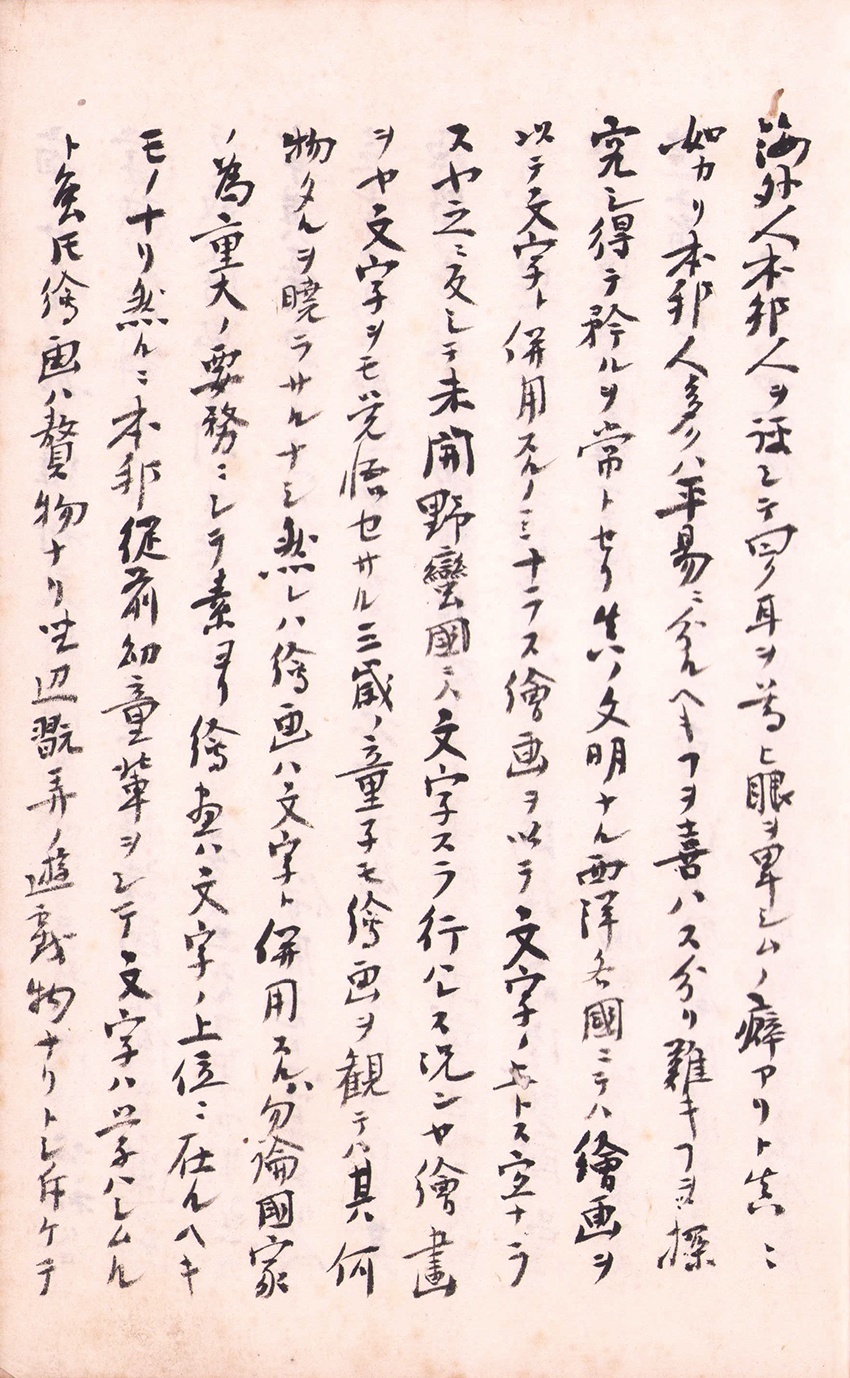 海外人本邦人ヲ評シテ曰ク耳ヲ尊ヒ眼ヲ卑シムノ癖アリト真ニ
如カリ本邦人多クハ平易ニ分ルヘキヿヲ喜ハス分リ難キヿヲ探
究シ得テ矜ルヲ常トセリ真ノ文明ナル西洋各國ニテハ繪画ヲ
以テ文字ト併用スルノミナラス繪画ヲ以テ文字ノ母トス宜ナラ
スヤ之ニ反シテ未開野蠻國ニハ文字スラ行ハレス况ンヤ繪畫
ヲヤ文字ヲモ覚悟セサル三歳ノ童子モ繪画ヲ観テハ其ノ何
物タルヲ曉ラサルナシ然レハ繪画ハ文字ト併用スルハ勿論國家
ノ為重大ノ要務ニシテ素ヨリ繪画ハ文字ノ上位ニ在ルヘキ
モノナリ然ルニ本邦從前幼童輩ヲシテ文字ハ学ハシムル
ト雖𪜈繪画ハ贅物ナリ坐辺翫弄ノ遊戯物ナリトシ斥ケテ